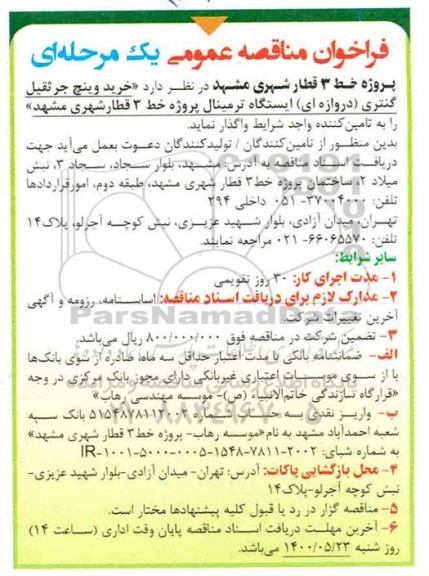 فراخوان مناقصه عمومی یک مرحله‌ای
پروژه خط ۳ قطار شهری مشهد در نظر دارد «خرید وینچ جرثقیل
گنتری (دروازه ای) ایستگاه ترمینال پروژه خط ۳ قطارشهری مشهد»
را به تامین‌کننده واجد شرایط واگذار نماید.
بدین منظور از تامین‌کنندگان / تولیدکنندگان دعوت بعمل می‌آید جهت
دریافت اسناد مناقصه به آدرس: مشهد، بلوار سجاد، سجاد ۳، نبش
میلاد ۲، ساختمان پروژه خط۳ قطار شهری مشهد، طبقه دوم، امورقراردادها
تلفن: ۳۷۰۰۴۰۰۰- ۰۵۱ داخلی ۲۹۴
تهران، میدان آزادی، بلوار شهید عزیزی، نبش کوچه آجرلو، پلاک۱۴
تلفن: ۶۶۰۶۵۵۷۰- ۰۲۱ مراجعه نمایند.
سایر شرایط:
۱- مدت اجرای کار: ۳۰ روز تقویمی
۲- مدارک لازم برای دریافت اسناد مناقصه: اساسنامه، رزومه و آگهی
آخرین تغییرات شرکت.
ParsNamadData
۳- تضمین شرکت در مناقصه فوق ۸۰۰/۰۰۰/۰۰۰ ریال می‌باشد.
الف- ضمانتنامه بانکی با مدت اعتبار حداقل سه ماه صادره از سوی بانک‌ها
یا از سوی موسسات اعتباری غیربانکی دارای مجوز بانک مرکزی در وجه
«قرارگاه سازندگی خاتم‌الانبیاء (ص)- موسسه مهندسی رهاب»
ب- واریز نقدی به حساب سپه ۵۱۵۴۸۷۸۱۱۲۰۰۲ بانک سپه
شعبه احمدآباد مشهد به نام «موسسه رهاب- پروژه خط۳ قطار شهری مشهد»
به شماره شبای: IR-۱۰۰۱-۵۰۰۰-۰۰۰۵-۱۵۴۸-۷۸۱۱-۲۰۰۲
۴- محل بازگشایی پاکات: آدرس: تهران- میدان آزادی-بلوار شهید عزیزی-
نبش کوچه آجرلو-پلاک۱۴
۵- مناقصه گزار در رد یا قبول کلیه پیشنهادها مختار است.
۶- آخرین مهلت دریافت اسناد مناقصه پایان وقت اداری (ساعت ۱۴)
روز شنبه ۱۴۰۰/۰۵/۲۳ می‌باشد.